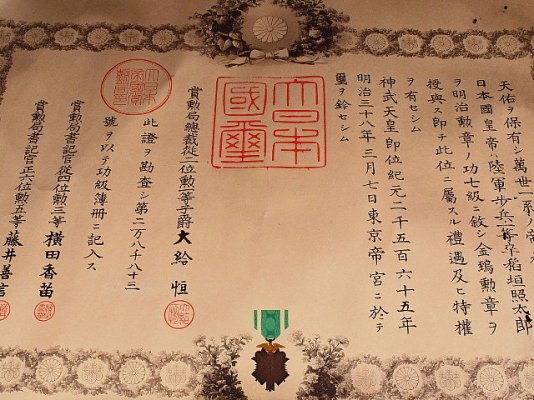 天佑ヲ保有シ萬世一系ノ帝
日本國皇帝ハ陸軍歩兵一等卒稻垣照太郎
ヲ明治勲章ノ功七級ニ敘シ金鵄勲章ヲ
授與ス即チ此位ニ屬スル禮遇及ヒ特權
ヲ有セシム
神武天皇即位紀元二千五百六十五年
明治三十八年三月七日東京帝宮ニ於テ
璽ヲ鈐セシム
大日本
國璽
賞勲局總裁從二位勲一等子爵大給恒
此證ヲ勘査シ第二万八千八十三
號ヲ以テ功級簿冊ニ記入ス
賞勲局書記官從四位勲三等横田香苗
賞勲局書記官正六位勲五等藤井善言